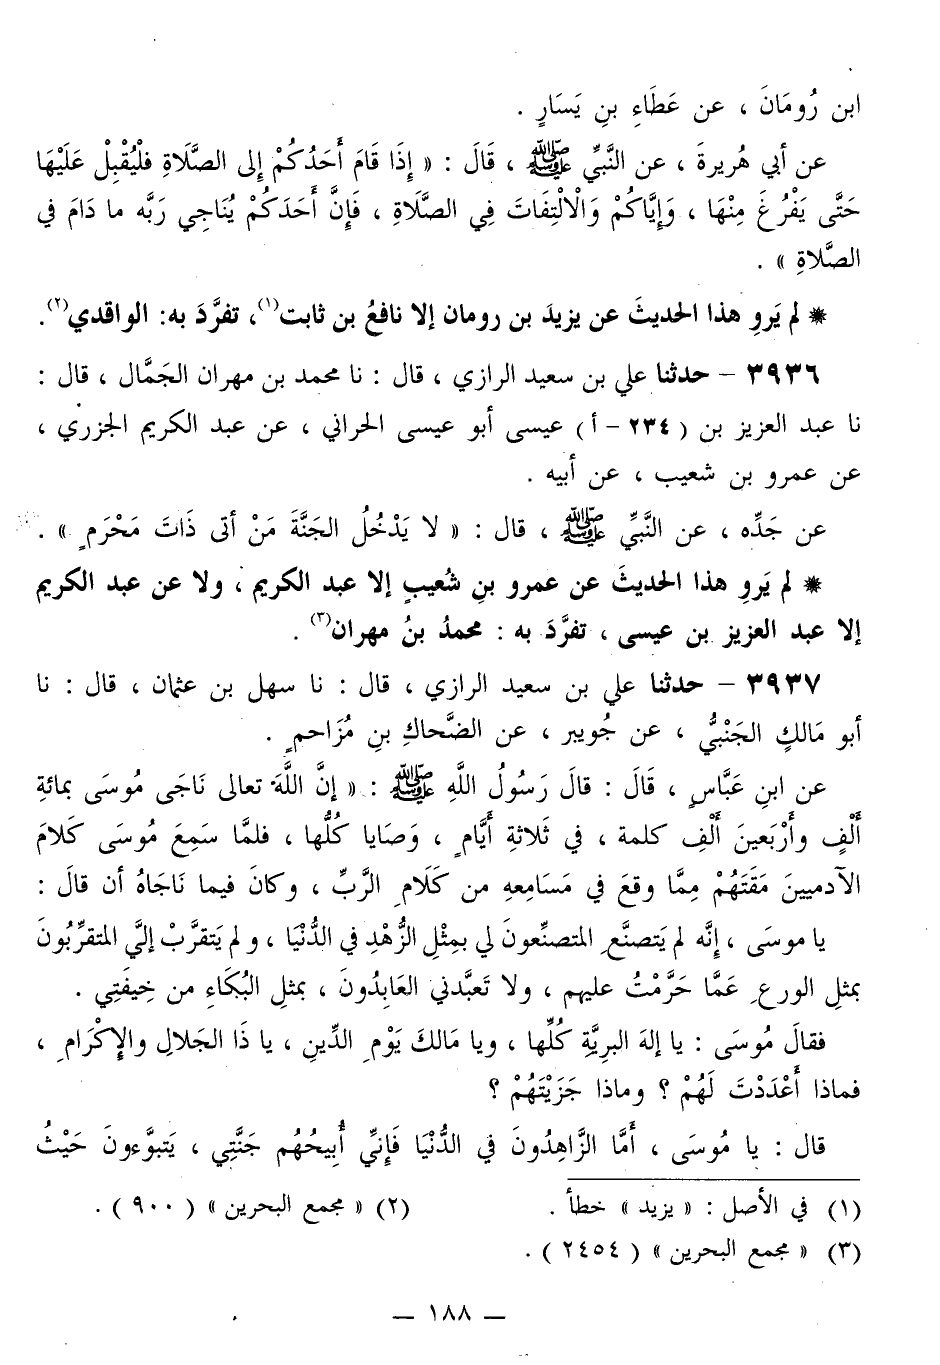 ابن رُومَانَ ، عن عَطَاءِ بنِ يَسَارٍ .
عن أبي هُريرةَ ، عن النَّبيِّ ﷺ ، قَالَ : « إِذَا قَامَ أَحَدُكُمْ إلى الصَّلَاةِ فلْيُقْبِلْ عَلَيْهَا
حَتَّى يَفْرُغَ مِنْهَا ، وَإِيَّاكُمْ وَالْالْتِفَاتَ فِي الصَّلَاةِ ، فَإِنَّ أَحَدَكُمْ يُنَاجِي رَبَّه ما دَامَ في
الصَّلاةِ » .
* لم يَروِ هذا الحديثَ عن يزيدَ بن رومان إلا نافعُ بن ثابت(١)، تفرَّدَ به: الواقدي(٢).
٣٩٣٦ – حدثنا علي بن سعيد الرازي ، قال : نا محمد بن مهران الجَمَّال ، قال :
نا عبد العزيز بن ( ٢٣٤ - أ ) عيسى أبو عيسى الحراني ، عن عبد الكريم الجزري ،
عن عمرو بن شعيب ، عن أبيه .
عن جَدِّه ، عن النَّبيِّ ﷺ ، قال : « لا يَدْخُلُ الجَنَّةَ مَنْ أتى ذَاتَ مَحْرَمٍ » .
* لم يَروِ هذا الحديثَ عن عمرو بنِ شُعيبٍ إلا عبد الكريم ، ولا عن عبد الكريم
إلا عبد العزيز بن عيسى ، تفرَّدَ به : محمدُ بنُ مهران(٣) .
٣٩٣٧ – حدثنا علي بن سعيد الرازي ، قال : نا سهل بن عثمان ، قال : نا
أبو مَالكٍ الجَنْبيُّ ، عن جُويبر ، عن الضَّحاكِ بنِ مُزَاحمٍ .
عن ابنِ عَبَّاسٍ ، قَالَ : قالَ رَسُولُ اللَّهِ ﷺ : « إنَّ اللَّهَ تعالى نَاجَى مُوسَى بمائةِ
أَلْفٍ وأَرْبَعينَ أَلْفِ كلمة ، في ثَلاثةِ أَيَّامٍ ، وَصَايا كُلُّها ، فلمَّا سَمِعَ مُوسَى كَلامَ
الآدميينَ مَقَتَهُمْ مِمَّا وقعَ في مَسَامِعِهِ من كَلَامِ الرَّبِّ ، وكانَ فيما نَاجَاهُ أن قالَ :
يا موسَى ، إنَّه لم يَتصنَّعِ المتصنِّعونَ لي بمِثْلِ الزُّهْدِ في الدُّنْيَا ، ولم يَتقرَّبْ إليَّ المتقرِّبُونَ
بمثلِ الورعِ عَمَّا حَرَّمْتُ عليهم ، ولا تَعبَّدني العَابِدُونَ ، بمثلِ البُكَاءِ من خِيفَتِي .
فقالَ مُوسَى : يا إلهَ البرِيَّةِ كُلِّها ، ويا مَالكَ يَوْمِ الدِّينِ ، يا ذَا الجَلالِ والإِكْرَامِ ،
فماذا أَعْدَدْتَ لَهُمْ ؟ وماذا جَزَيْتَهُمْ ؟
قال : يا مُوسَى ، أَمَّا الزَّاهِدُونَ في الدُّنْيَا فَإِنِّي أُبِيحُهُم جَنَّتِي ، يَتبوَّءونَ حَيْثُ
(١) في الأصل : « يزيد » خطأ . (٢) « مجمع البحرين » ( ٩٠٠ ) .
(٣) « مجمع البحرين » ( ٢٤٥٤ ) .
— ١٨٨ —